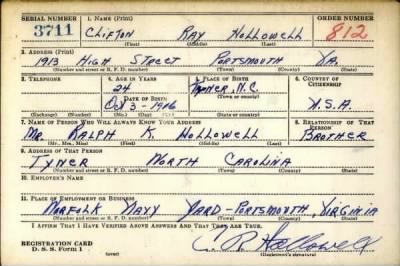 SERIAL NUMBER 1. NAME (Print) ORDER NUMBER
3711 CLIFTON RAY HOLLOWELL 812
(First) (Middle) (Last)
2. ADDRESS (Print)
1913 HIGH STREET PORTSMOUTH VA.
(Number and street or R. F. D. number) (Town) (County) (State)
3. TELEPHONE 4. AGE IN YEARS 5. PLACE OF BIRTH 6. COUNTRY OF CITIZENSHIP
24 TYNER, N.C.
DATE OF BIRTH (Town or county)
OCT 3 - 1916 U.S.A.
(Exchange) (Number) (Mo.) (Day) (Yr.) (State or country)
7. NAME OF PERSON WHO WILL ALWAYS KNOW YOUR ADDRESS 8. RELATIONSHIP OF THAT PERSON
MR. RALPH K. HOLLOWELL BROTHER
(Mr., Mrs., Miss) (First) (Middle) (Last)
9. ADDRESS OF THAT PERSON
TYNER NORTH CAROLINA
(Number and street or R. F. D. number) (Town) (County) (State)
10. EMPLOYER'S NAME
11. PLACE OF EMPLOYMENT OR BUSINESS
NORFOLK NAVY YARD - PORTSMOUTH, VIRGINIA
(Number and street or R. F. D. number) (Town) (County) (State)
I AFFIRM THAT I HAVE VERIFIED ABOVE ANSWERS AND THAT THEY ARE TRUE.
REGISTRATION CARD
D. S. S. Form 1 C. R. Hollowell
(Registrant's signature)